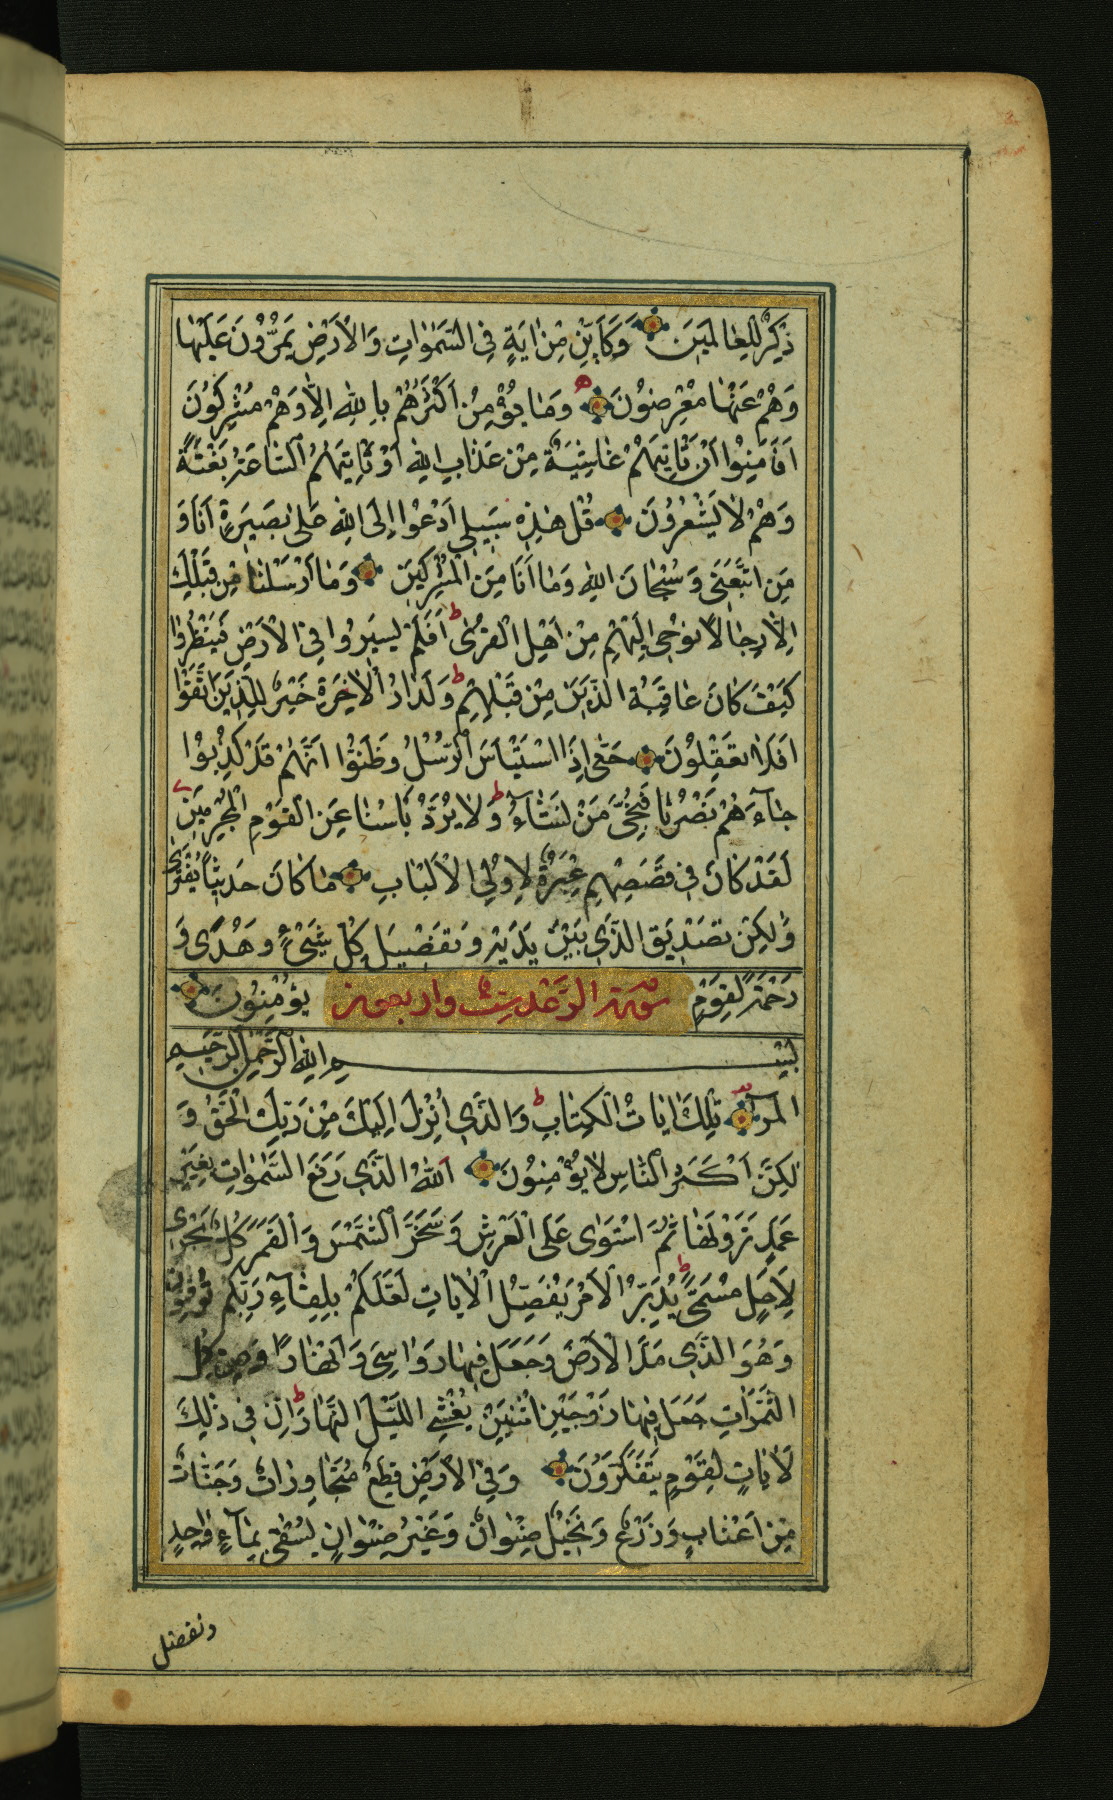 ذِكْرٌ لِلْعٰالَمِينَ وَكَاَيِّنْ مِنْ اٰيَةٍ فِي السَّمٰوٰاتِ وَالْاَرْضِ يَمُرُّونَ عَلَيْهٰا
وَهُمْ عَنْهٰا مُعْرِضُونَ وَمٰا يُؤْمِنُ اَكْثَرُهُمْ بِاللّٰهِ اِلّٰا وَهُمْ مُشْرِكُونَ
اَفَاَمِنُوا اَنْ تَاْتِيَهُمْ غٰاشِيَةٌ مِنْ عَذٰابِ اللّٰهِ اَوْ تَاْتِيَهُمُ السّٰاعَةُ بَغْتَةً
وَهُمْ لٰا يَشْعُرُونَ قُلْ هٰذِهِ سَبِيلِي اَدْعُوا اِلَى اللّٰهِ عَلىٰ بَصِيرَةٍ اَنَا وَ
مَنِ اتَّبَعَنِي وَسُبْحٰانَ اللّٰهِ وَمٰا اَنَا مِنَ الْمُشْرِكِينَ وَمٰا اَرْسَلْنٰا مِنْ قَبْلِكَ
اِلّٰا رِجٰالًا نُوحِي اِلَيْهِمْ مِنْ اَهْلِ الْقُرىٰ ط اَفَلَمْ يَسِيرُوا فِي الْاَرْضِ فَيَنْظُرُوا
كَيْفَ كٰانَ عٰاقِبَةُ الَّذِينَ مِنْ قَبْلِهِمْ ط وَلَدٰارُ الْاٰخِرَةِ خَيْرٌ لِلَّذِينَ اتَّقَوْا
اَفَلٰا تَعْقِلُونَ حَتّٰى اِذَا اسْتَيْاَسَ الرُّسُلُ وَظَنُّوا اَنَّهُمْ قَدْ كُذِبُوا
جٰاءَهُمْ نَصْرُنٰا فَنُجِّيَ مَنْ نَشٰاءُ ط وَلٰا يُرَدُّ بَاْسُنٰا عَنِ الْقَوْمِ الْمُجْرِمِينَ
لَقَدْ كٰانَ فِي قَصَصِهِمْ عِبْرَةٌ لِاُولِي الْاَلْبٰابِ مٰا كٰانَ حَدِيثًا يُفْتَرىٰ
وَلٰكِنْ تَصْدِيقَ الَّذِي بَيْنَ يَدَيْهِ وَتَفْصِيلَ كُلِّ شَيْءٍ وَهُدًى وَ
رَحْمَةً لِقَوْمٍ سورة الرعد ست واربعون يُؤْمِنُونَ
بِسْمِ اللّٰهِ الرَّحْمٰنِ الرَّحِيمِ
الٓمٓرٰ تِلْكَ اٰيٰاتُ الْكِتٰابِ ط وَالَّذِي اُنْزِلَ اِلَيْكَ مِنْ رَبِّكَ الْحَقُّ وَ
لٰكِنَّ اَكْثَرَ النّٰاسِ لٰا يُؤْمِنُونَ اَللّٰهُ الَّذِي رَفَعَ السَّمٰوٰاتِ بِغَيْرِ
عَمَدٍ تَرَوْنَهٰا ثُمَّ اسْتَوىٰ عَلَى الْعَرْشِ وَسَخَّرَ الشَّمْسَ وَالْقَمَرَ كُلٌّ يَجْرِي
لِاَجَلٍ مُسَمًّى ط يُدَبِّرُ الْاَمْرَ يُفَصِّلُ الْاٰيٰاتِ لَعَلَّكُمْ بِلِقٰاءِ رَبِّكُمْ تُوقِنُونَ
وَهُوَ الَّذِي مَدَّ الْاَرْضَ وَجَعَلَ فِيهٰا رَوٰاسِيَ وَاَنْهٰارًا وَمِنْ كُلِّ
الثَّمَرٰاتِ جَعَلَ فِيهٰا زَوْجَيْنِ اثْنَيْنِ يُغْشِي اللَّيْلَ النَّهٰارَ ط اِنَّ فِي ذٰلِكَ
لَاٰيٰاتٍ لِقَوْمٍ يَتَفَكَّرُونَ وَفِي الْاَرْضِ قِطَعٌ مُتَجٰاوِرٰاتٌ وَجَنّٰاتٌ
مِنْ اَعْنٰابٍ وَزَرْعٌ وَنَخِيلٌ صِنْوٰانٌ وَغَيْرُ صِنْوٰانٍ يُسْقىٰ بِمٰاءٍ وٰاحِدٍ
ونفضل